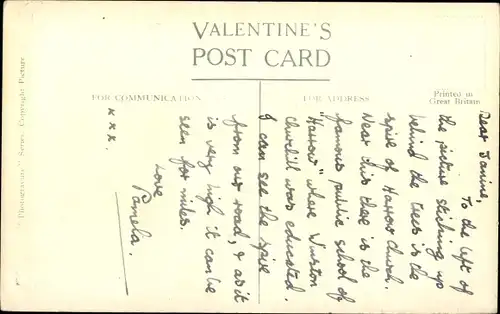 VALENTINE'S
POST CARD
FOR COMMUNICATION
FOR ADDRESS
Printed in
Great Britain
"Photogravure" Series. Copyright Picture
Dear Janine,
To the left of
the picture sticking up
behind the trees is the
spire of Harrow Church.
Near this there is the
famous public school of
"Harrow" where Winston
Churchill was educated.
I can see the spire
from our road, & as it
is very high it can be
seen for miles.
Love
Pamela.
x x x.